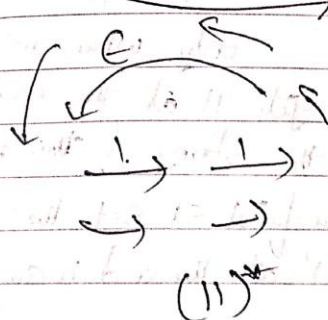 ε
1 1
(11)*